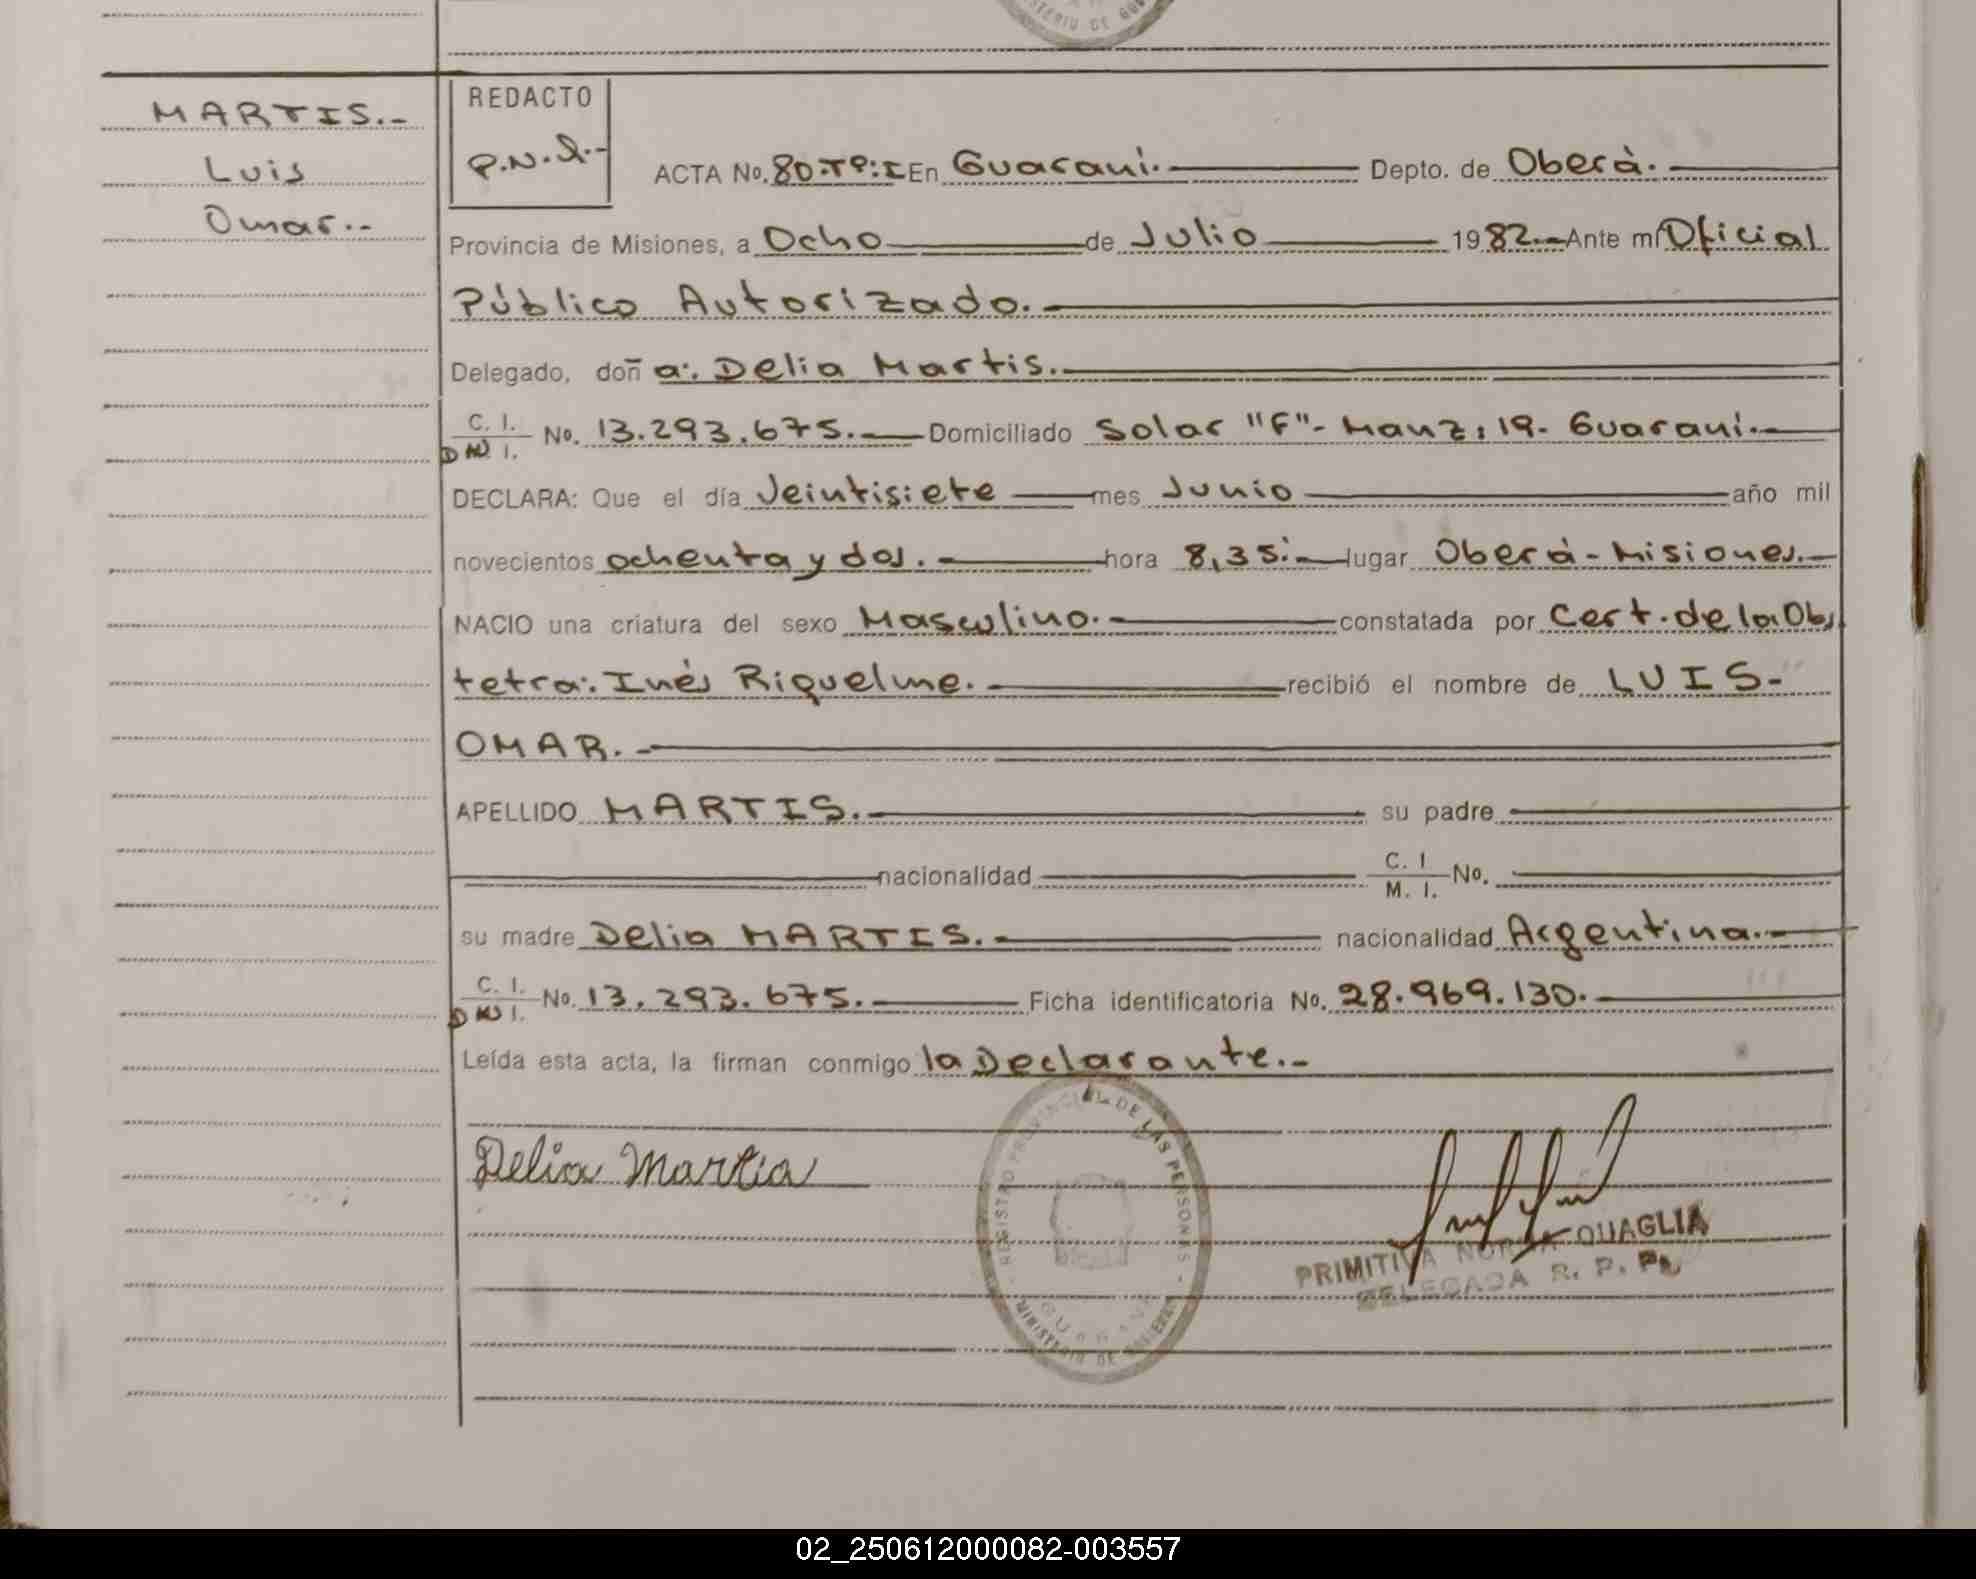 MINISTERIO DE GOB
MARTIS.-
Luis
Omar.-
REDACTO
P.N.Q.-
ACTA No. 80.Tº:I En Guaraní. Depto. de Oberá.
Provincia de Misiones, a Ocho de Julio 1982.- Ante mí Oficial
Público Autorizado.
Delegado, doña: Delia Martis.
C. I. / DNI. No. 13.293.675. Domiciliado Solar "F"- Manz: 19- Guaraní.-
DECLARA: Que el día Veintisiete mes Junio año mil
novecientos ochenta y dos. hora 8,35:- lugar Oberá-Misiones.-
NACIO una criatura del sexo Masculino. constatada por Cert. de la Obs
tetra: Inés Riquelme. recibió el nombre de LUIS-
OMAR.-
APELLIDO MARTIS. su padre
nacionalidad C. I / M. I. No.
su madre Delia MARTIS. nacionalidad Argentina.-
C. I. / DNI. No. 13.293.675. Ficha identificatoria No. 28.969.130.
Leída esta acta, la firman conmigo la Declarante.-
Delia Martia
REGISTRO PROVINCIAL DE LAS PERSONAS
GUARANI
MINISTERIO DE GOBIERNO
PRIMITIVA NORMA QUAGLIA
DELEGADA R. P. P.
02_250612000082-003557